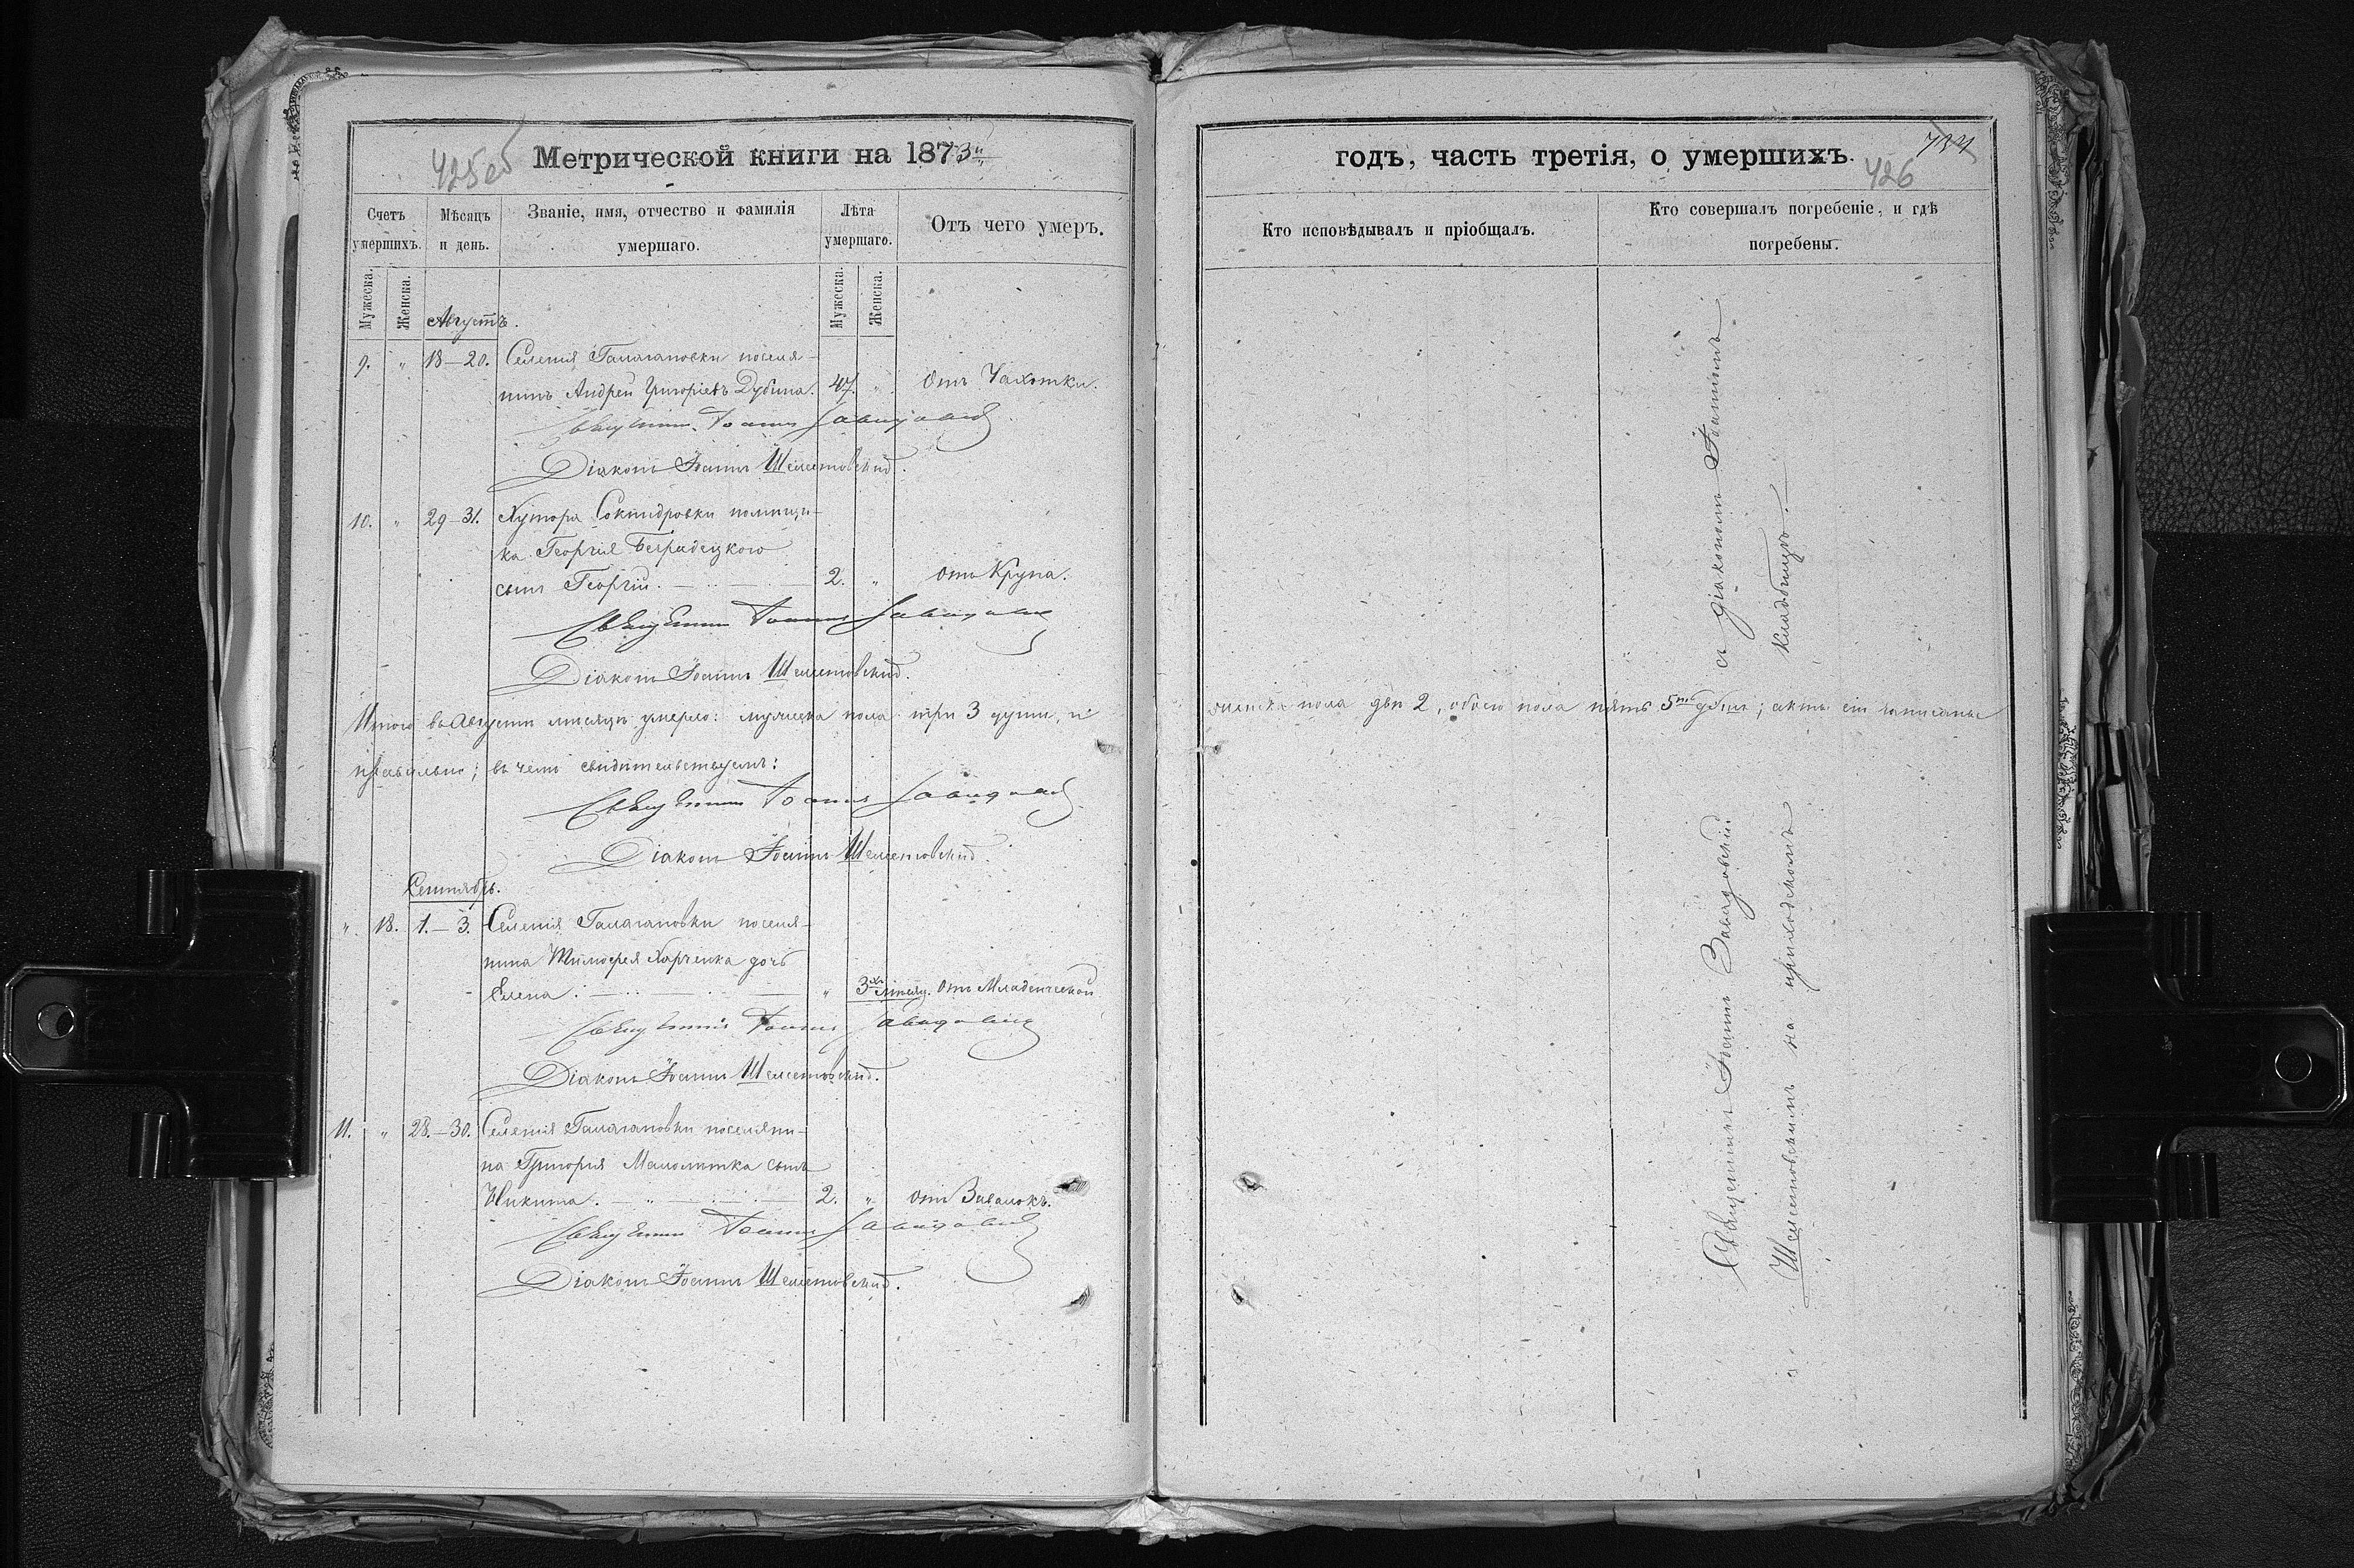 425об
Метрической книги на 1873й
Счетъ умершихъ.
Мѣсяцъ и день.
Званіе, имя, отчество и фамилія умершаго.
Лѣта умершаго.
Отъ чего умеръ.
Мужеска.
Женска.
Мужеска.
Женска.
Августъ.
9. " 18–20. Селенія Галагановки поселя-
нинъ Андрей Григоріевъ Дубина. 47. " Отъ Чахотки.
Священникъ Іоаннъ Завадовскій
Діаконъ Іоаннъ Шелестовскій.
10. " 29–31. Хутора помѣщи-
ка Георгія
сынъ Георгій. 2. " отъ Крупа.
Священникъ Іоаннъ Завадовскій
Діаконъ Іоаннъ Шелестовскій.
Итого въ Августѣ мѣсяцѣ умерло: мужеска пола три 3 души, и
правильно; въ чемъ свидѣтельствуемъ:
Священникъ Іоаннъ Завадовскій
Діаконъ Іоаннъ Шелестовскій.
Сентябрь.
" 18. 1.–3. Селенія Галагановки поселя-
нина Тимофея Харченка дочь
Елена. " 3хъ мѣсяц. Отъ Младенческой
Священникъ Іоаннъ Завадовскій
Діаконъ Іоаннъ Шелестовскій.
11. " 28.–30. Селенія Галагановки поселяни-
на Григорія сынъ
Никита. 2. " отъ Завалокъ.
Священникъ Іоаннъ Завадовскій
Діаконъ Іоаннъ Шелестовскій.
годъ, часть третія, о умершихъ.
426
Кто исповѣдывалъ и пріобщалъ.
Кто совершалъ погребеніе, и гдѣ погребены.
женска пола двѣ 2, обоего пола пять 5ть душъ; акты сіи записаны
Священникъ Іоаннъ Завадовскій съ діакономъ Іоанномъ
Шелестовскимъ на приходскомъ кладбищѣ.